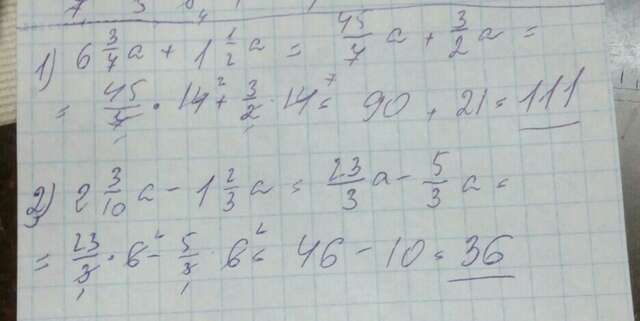 1) 6 3/7 a + 1 1/2 a = 45/7 a + 3/2 a =
= 45/7 · 14 2 + 3/2 · 14 7 = 90 + 21 = 111
2) 2 3/10 a - 1 2/3 a = 23/3 a - 5/3 a =
= 23/3 · 6 2 - 5/3 · 6 2 = 46 - 10 = 36